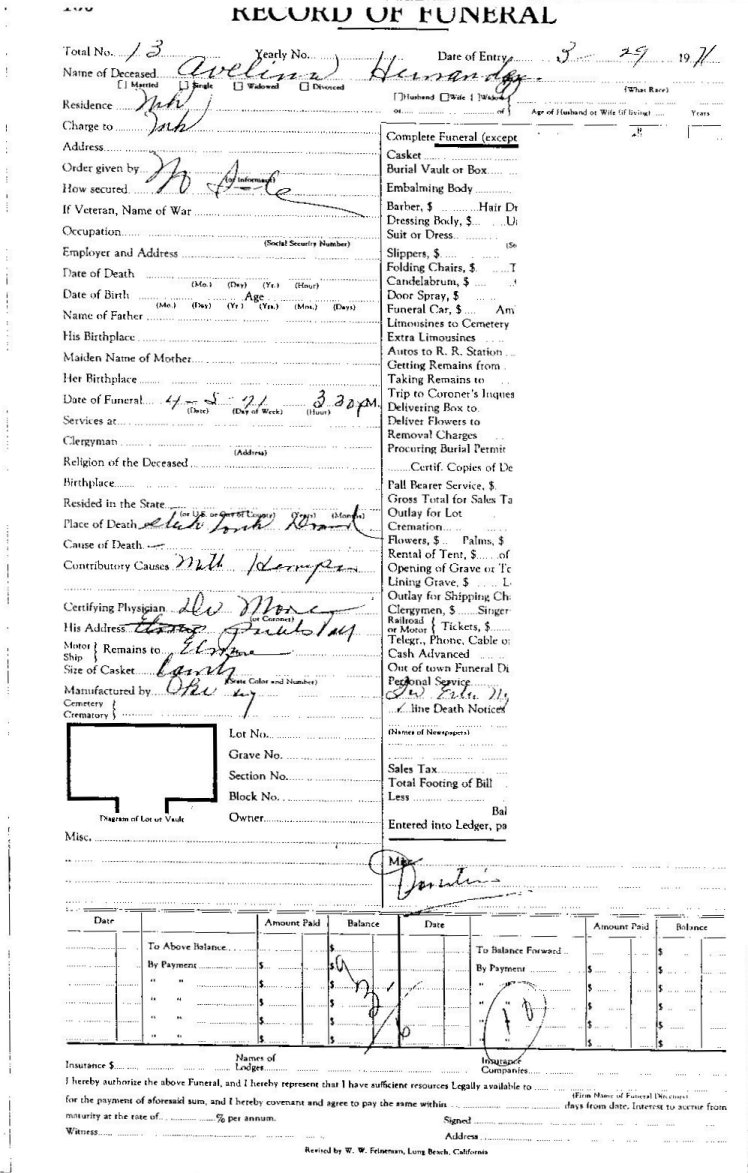 RECORD OF FUNERAL
Total No. 13 Yearly No. Date of Entry 3 - 29 1971
Name of Deceased Avelina Hernandez
Married Single Widowed Divorced Husband Wife Widow (What Race)
Residence or of Age of Husband or Wife (if living) Years
Charge to
Address
Order given by (or Informant)
How secured
If Veteran, Name of War
Occupation
(Social Security Number)
Employer and Address
Date of Death
(Mo.) (Day) (Yr.) (Hour)
Date of Birth Age
(Mo.) (Day) (Yr.) (Yrs.) (Mos.) (Days)
Name of Father
His Birthplace
Maiden Name of Mother
Her Birthplace
Date of Funeral 4 - 5 - 71 3 30 PM.
(Date) (Day of Week) (Hour)
Services at
Clergyman
(Address)
Religion of the Deceased
Birthplace
Resided in the State
(or U.S. or Out of County) (Years) (Months)
Place of Death
Cause of Death
Contributory Causes
Certifying Physician Dr
(or Coroner)
His Address
Motor Ship { Remains to
Size of Casket
(State Color and Number)
Manufactured by
Cemetery
Crematory
Lot No.
Grave No.
Section No.
Block No.
Diagram of Lot or Vault Owner
Misc.
Complete Funeral (except
Casket
Burial Vault or Box
Embalming Body
Barber, $ Hair Dr
Dressing Body, $ U
Suit or Dress
(So
Slippers, $
Folding Chairs, $ T
Candelabrum, $
Door Spray, $
Funeral Car, $ Am
Limousines to Cemetery
Extra Limousines
Autos to R. R. Station
Getting Remains from
Taking Remains to
Trip to Coroner's Inques
Delivering Box to
Deliver Flowers to
Removal Charges
Procuring Burial Permit
Certif. Copies of De
Pall Bearer Service, $
Gross Total for Sales Ta
Outlay for Lot
Cremation
Flowers, $ Palms, $
Rental of Tent, $ of
Opening of Grave or To
Lining Grave, $ L
Outlay for Shipping Ch
Clergymen, $ Singer
Railroad or Motor { Tickets, $
Telegr., Phone, Cable o
Cash Advanced
Out of town Funeral Di
Personal Service
line Death Notices
(Names of Newspapers)
Sales Tax
Total Footing of Bill
Less
Bal
Entered into Ledger, pa
Misc.
Date Amount Paid Balance Date Amount Paid Balance
To Above Balance $ To Balance Forward $
By Payment $ $ By Payment $ $
" " $ $ " " $ $
" " $ $ " " $ $
" " $ $ $ $
" " $ $ $ $
Insurance $ Names of Lodges Insurance Companies
I hereby authorize the above Funeral, and I hereby represent that I have sufficient resources Legally available to
(Firm Name of Funeral Directors)
for the payment of aforesaid sum, and I hereby covenant and agree to pay the same within days from date. Interest to accrue from
maturity at the rate of % per annum. Signed
Witness Address
Revised by W. W. Feineman, Long Beach, California